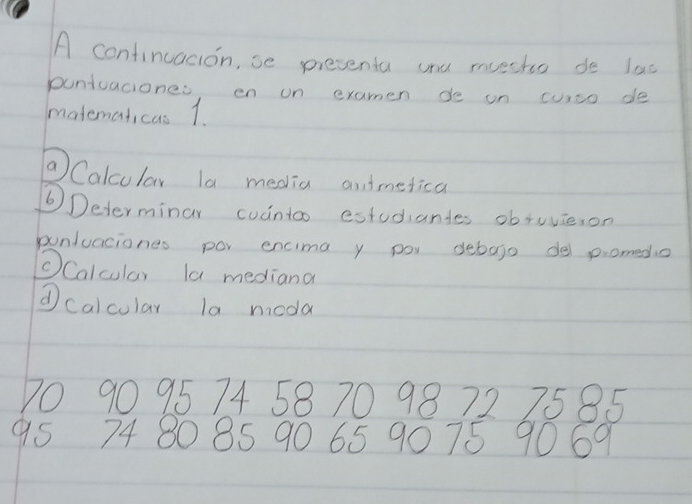 A continuación, se presenta una muestra de las
puntuaciones en un examen de un curso de
matematicas 1.
a) Calcular la media aritmetica
b) Determinar cuántos estudiantes obtuvieron
puntuaciones por encima y por debajo del promedio
c) Calcular la mediana
d) Calcular la moda
70 90 95 74 58 70 98 72 75 85
95 74 80 85 90 65 90 75 90 69